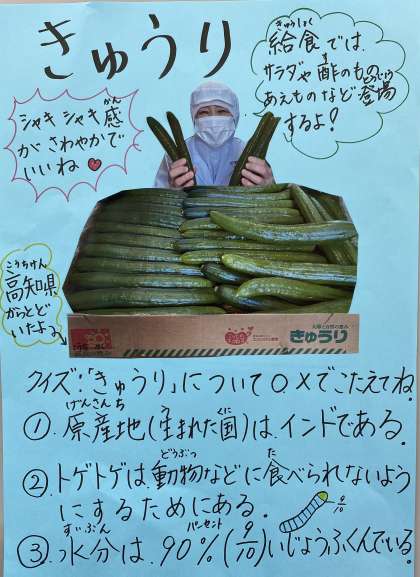 きゅうり
きゅうしょく
給食では、
す
サラダや酢のもの
とうじょう
あえものなど登場
するよ！
かん
シャキシャキ感
がさわやかで
いいね
こうちけん
高知県
からとど
いたよ。
きゅうり
クイズ：「きゅうり」について〇×でこたえてね。
げんさんち う くに
①．原産地（生まれた国）は、インドである。
どうぶつ た
②．トゲトゲは、動物などに食べられないよう
にするためにある。
すいぶん パーセント
③．水分は、90%（9/10）いじょうふくんでいる。
9/10